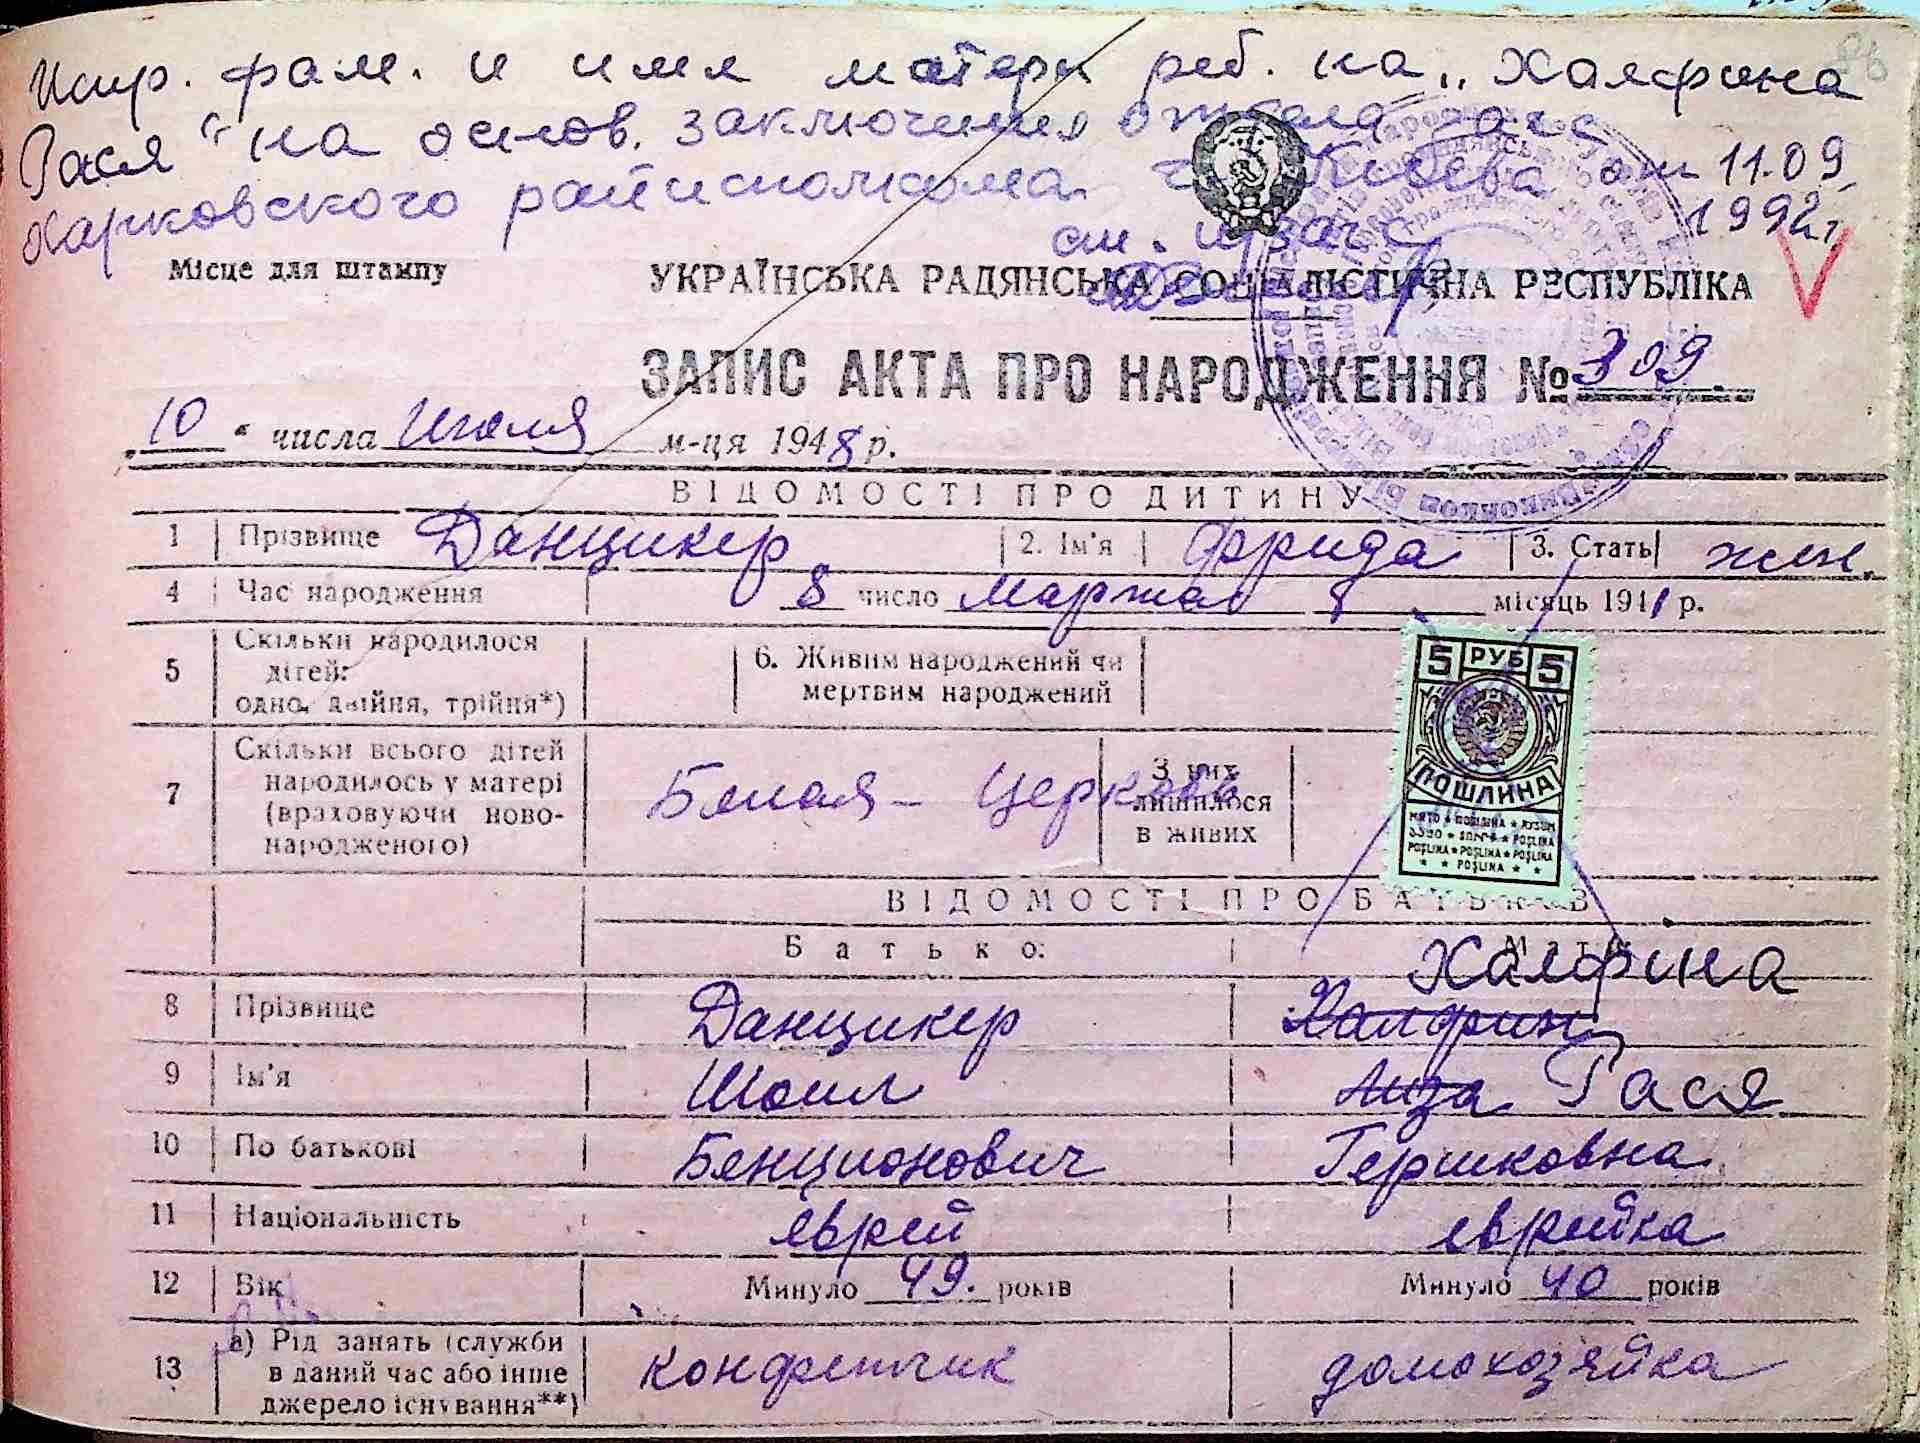 Испр. фам. и имя матери реб. на „Халфина
Гася" на основ. заключения отдела загс
Харковского райисполкома г. Киева от 11.09.
1992 г.
Місце для штампу
УКРАЇНСЬКА РАДЯНСЬКА СОЦІАЛІСТИЧНА РЕСПУБЛІКА
ЗАПИС АКТА ПРО НАРОДЖЕННЯ № 309.
10 " числа Июля м-ця 1948 р.
ВІДОМОСТІ ПРО ДИТИНУ
1 Прізвище Данцикер 2. Ім'я Фрида 3. Стать жен.
4 Час народження 8 число Марта місяць 1941 р.
5 Скільки народилося
дітей:
одно, двійня, трійня*)
6. Живим народжений чи
мертвим народжений
5 РУБ 5
ПОШЛИНА
7 Скільки всього дітей
народилось у матері
(враховуючи ново-
народженого)
Белая - Церковь
З них
лишилося
в живих
ВІДОМОСТІ ПРО БАТЬКІВ
Батько: Мати
Халфина
8 Прізвище Данцикер Халфин
9 Ім'я Шоил Лиза Гася
10 По батькові Бенционович Гершковна
11 Національність еврей еврейка
12 Вік Минуло 49. років Минуло 40 років
13 а) Рід занять (служби
в даний час або інше
джерело існування**)
конфетчик домохозяйка